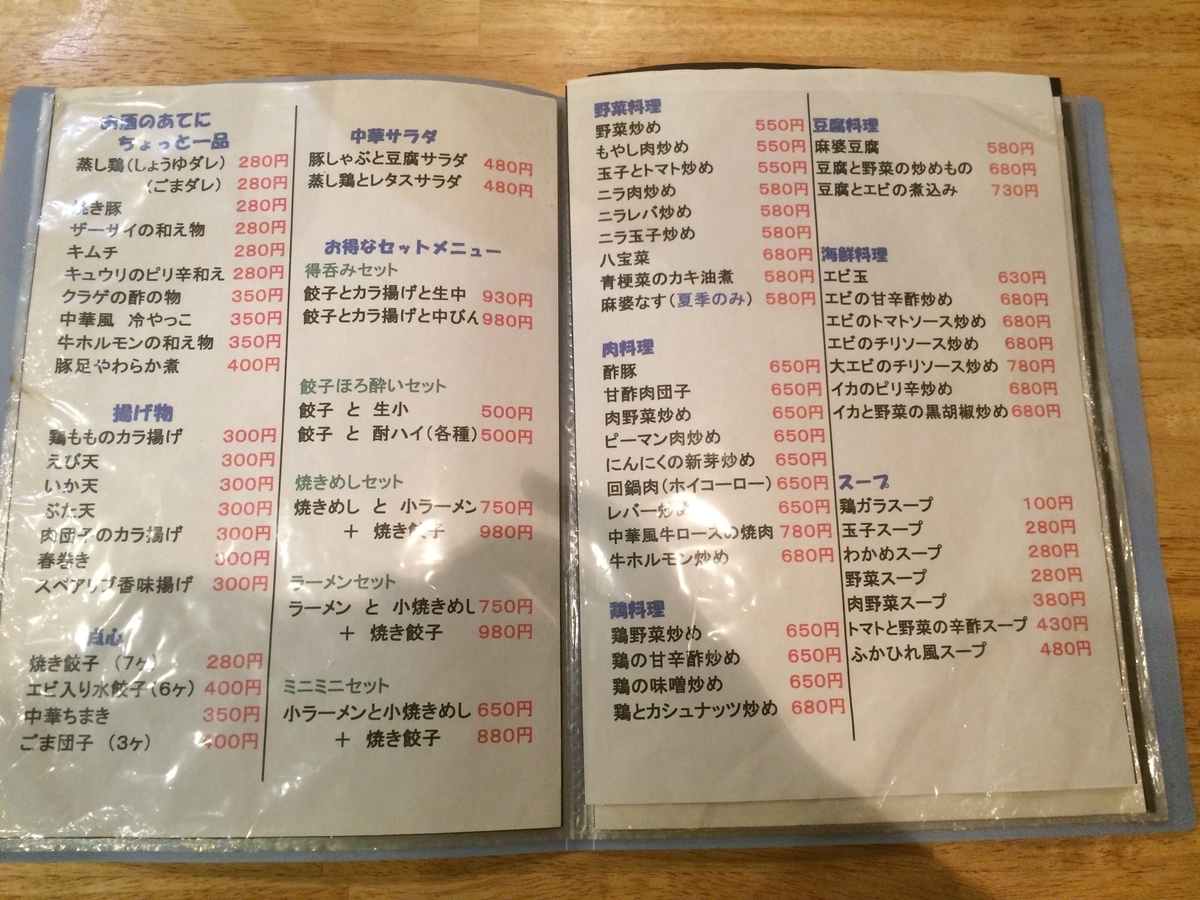 お酒のあてに
ちょっと一品
蒸し鶏(しょうゆダレ) 280円
(ごまダレ) 280円
焼き豚 280円
ザーサイの和え物 280円
キムチ 280円
キュウリのピリ辛和え 280円
クラゲの酢の物 350円
中華風 冷やっこ 350円
牛ホルモンの和え物 350円
豚足やわらか煮 400円
揚げ物
鶏もものカラ揚げ 300円
えび天 300円
いか天 300円
ぶた天 300円
肉団子のカラ揚げ 300円
春巻き 300円
スペアリブ香味揚げ 300円
点心
焼き餃子 (7ヶ) 280円
エビ入り水餃子(6ヶ) 400円
中華ちまき 350円
ごま団子 (3ヶ) 400円
中華サラダ
豚しゃぶと豆腐サラダ 480円
蒸し鶏とレタスサラダ 480円
お得なセットメニュー
得呑みセット
餃子とカラ揚げと生中 930円
餃子とカラ揚げと中びん 980円
餃子ほろ酔いセット
餃子 と 生小 500円
餃子 と 酎ハイ(各種) 500円
焼きめしセット
焼きめし と 小ラーメン 750円
+ 焼き餃子 980円
ラーメンセット
ラーメン と 小焼きめし 750円
+ 焼き餃子 980円
ミニミニセット
小ラーメンと小焼きめし 650円
+ 焼き餃子 880円
野菜料理
野菜炒め 550円
もやし肉炒め 550円
玉子とトマト炒め 550円
ニラ肉炒め 580円
ニラレバ炒め 580円
ニラ玉子炒め 580円
八宝菜 680円
青梗菜のカキ油煮 580円
麻婆なす(夏季のみ) 580円
肉料理
酢豚 650円
甘酢肉団子 650円
肉野菜炒め 650円
ピーマン肉炒め 650円
にんにくの新芽炒め 650円
回鍋肉(ホイコーロー) 650円
レバー炒め 650円
中華風牛ロースの焼肉 780円
牛ホルモン炒め 680円
鶏料理
鶏野菜炒め 650円
鶏の甘辛酢炒め 650円
鶏の味噌炒め 650円
鶏とカシュナッツ炒め 680円
豆腐料理
麻婆豆腐 580円
豆腐と野菜の炒めもの 680円
豆腐とエビの煮込み 730円
海鮮料理
エビ玉 630円
エビの甘辛酢炒め 680円
エビのトマトソース炒め 680円
エビのチリソース炒め 680円
大エビのチリソース炒め 780円
イカのピリ辛炒め 680円
イカと野菜の黒胡椒炒め 680円
スープ
鶏ガラスープ 100円
玉子スープ 280円
わかめスープ 280円
野菜スープ 280円
肉野菜スープ 380円
トマトと野菜の辛酢スープ 430円
ふかひれ風スープ 480円